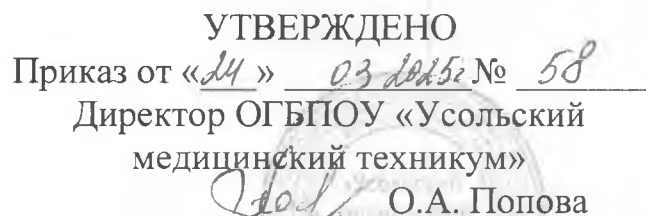 УТВЕРЖДЕНО
Приказ от «24» 03 2025г № 58
Директор ОГБПОУ «Усольский
медицинский техникум»
О.А. Попова